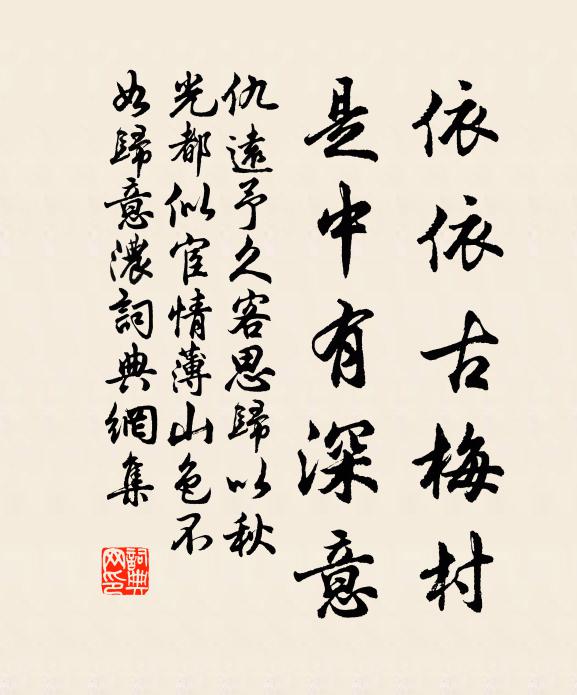 依依古梅村
是中有深意
仇遠予久客思歸以秋
光都似宦情薄山色不
如歸意濃詞典網集
詞典
网印